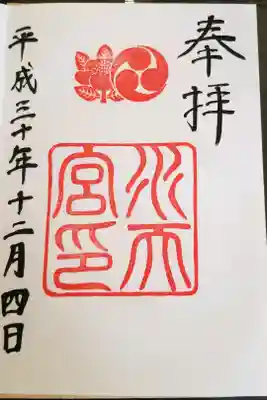 奉拝
水天宮印
平成三十年十二月四日